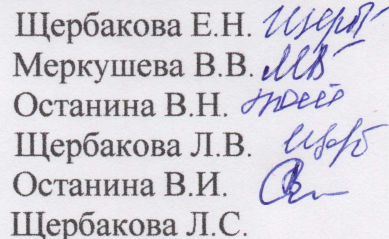 Щербакова Е.Н.
Меркушева В.В.
Останина В.Н.
Щербакова Л.В.
Останина В.И.
Щербакова Л.С.